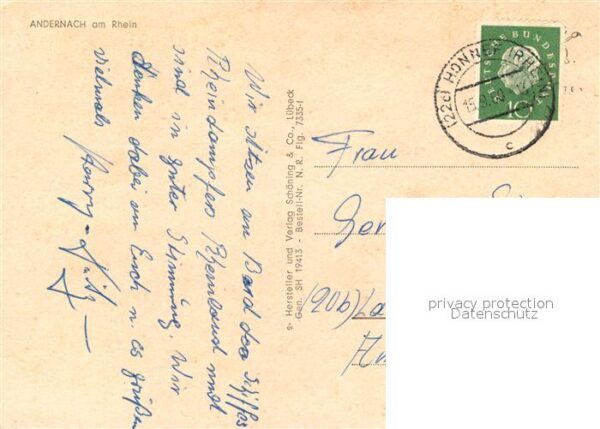 ANDERNACH am Rhein
Wir sitzen an Bord des Schiffes
Rheindampfer Rheinland und
sind in guter Stimmung. Wir
denken dabei an Euch u. es grüßen
vielmals
s- Hersteller und Verlag Schöning & Co., Lübeck
Gen. SH 19413 - Bestell-Nr. N. R. Flg. 7335-1
DEUTSCHE BUNDESPOST
10
(22c) HONNEF (RHEIN)
c
Frau
(20b)
privacy protection
Datenschutz